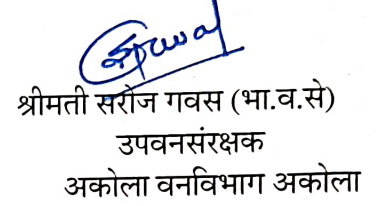 श्रीमती सरोज गवस (भा.व.से)
उपवनसंरक्षक
अकोला वनविभाग अकोला